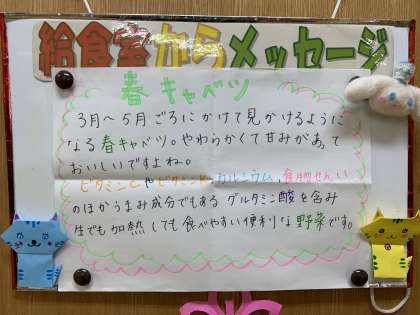 給食室からメッセージ
春キャベツ
3月〜5月ごろにかけて見かけるように
なる春キャベツ。やわらかくて甘みがあって
おいしいですよね。
ビタミンCやビタミンK、カルシウム、食物せんい
のほかうまみ成分でもあるグルタミン酸を含み
生でも加熱しても食べやすい便利な野菜です。